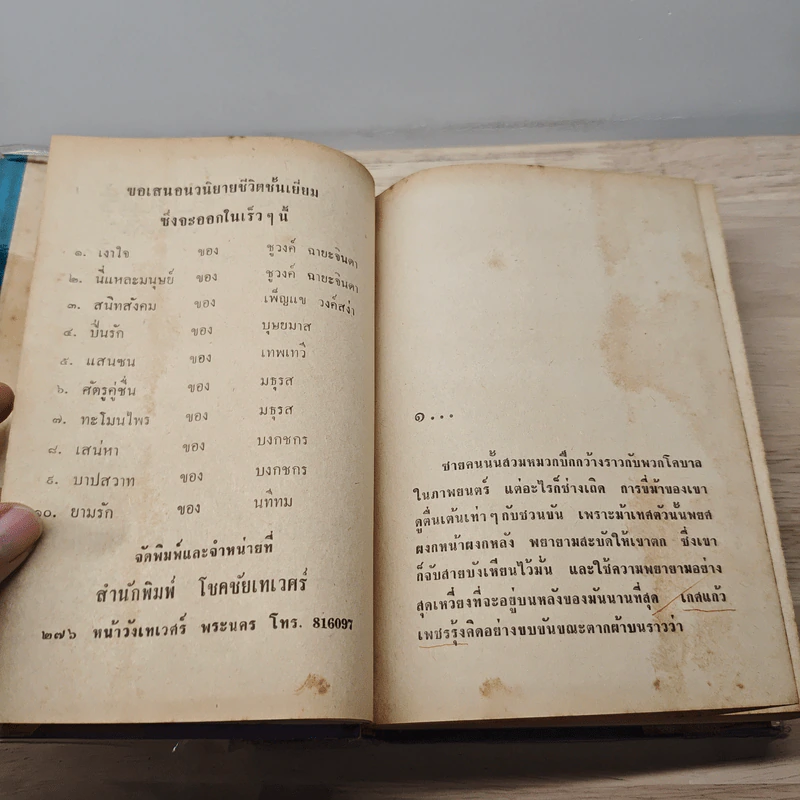 ขอเสนอนวนิยายชีวิตชั้นเยี่ยม
ซึ่งจะออกในเร็ว ๆ นี้
๑. เงาใจ ของ ชูวงศ์ ฉายะจินดา
๒. นี่แหละมนุษย์ ของ ชูวงศ์ ฉายะจินดา
๓. สนิทสังคม ของ เพ็ญแข วงศ์สง่า
๔. ปั้นรัก ของ บุษยมาส
๕. แสนซน ของ เทพเทวี
๖. ศัตรูคู่ชื่น ของ มธุรส
๗. ทะโมนไพร ของ มธุรส
๘. เสน่หา ของ บงกชกร
๙. บาปสวาท ของ บงกชกร
๑๐. ยามรัก ของ นทีทม
จัดพิมพ์และจำหน่ายที่
สำนักพิมพ์ โชคชัยเทเวศร์
๒๗๖ หน้าวังเทเวศร์ พระนคร โทร. 816097
๑...
ชายคนนั้นสวมหมวกปีกกว้างราวกับพวกโคบาล
ในภาพยนตร์ แต่อะไรก็ช่างเถิด การขี่ม้าของเขา
ดูตื่นเต้นเท่า ๆ กับชวนขัน เพราะม้าเทศตัวนั้นพยศ
ผงกหน้าผงกหลัง พยายามสะบัดให้เขาตก ซึ่งเขา
ก็จับสายบังเหียนไว้มั่น และใช้ความพยายามอย่าง
สุดเหวี่ยงที่จะอยู่บนหลังของมันนานที่สุด เกสแก้ว
เพชรรุ้งคิดอย่างขบขันขณะตากผ้าบนราวว่า